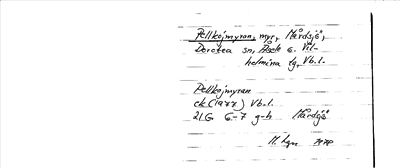 Pellkojmyran, myr, Mårdsjö,
Dorotea sn, Åsele o. Vil-
helmina tg, Vb.l.
Pellkojmyran
ek (1977) Vb.l.
21G 6-7 g-h Mårdsjö
M. Lgn